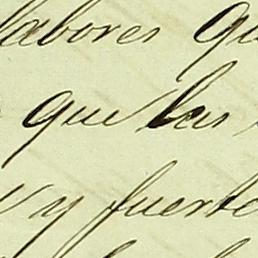 labores qu
que las
y fuerte